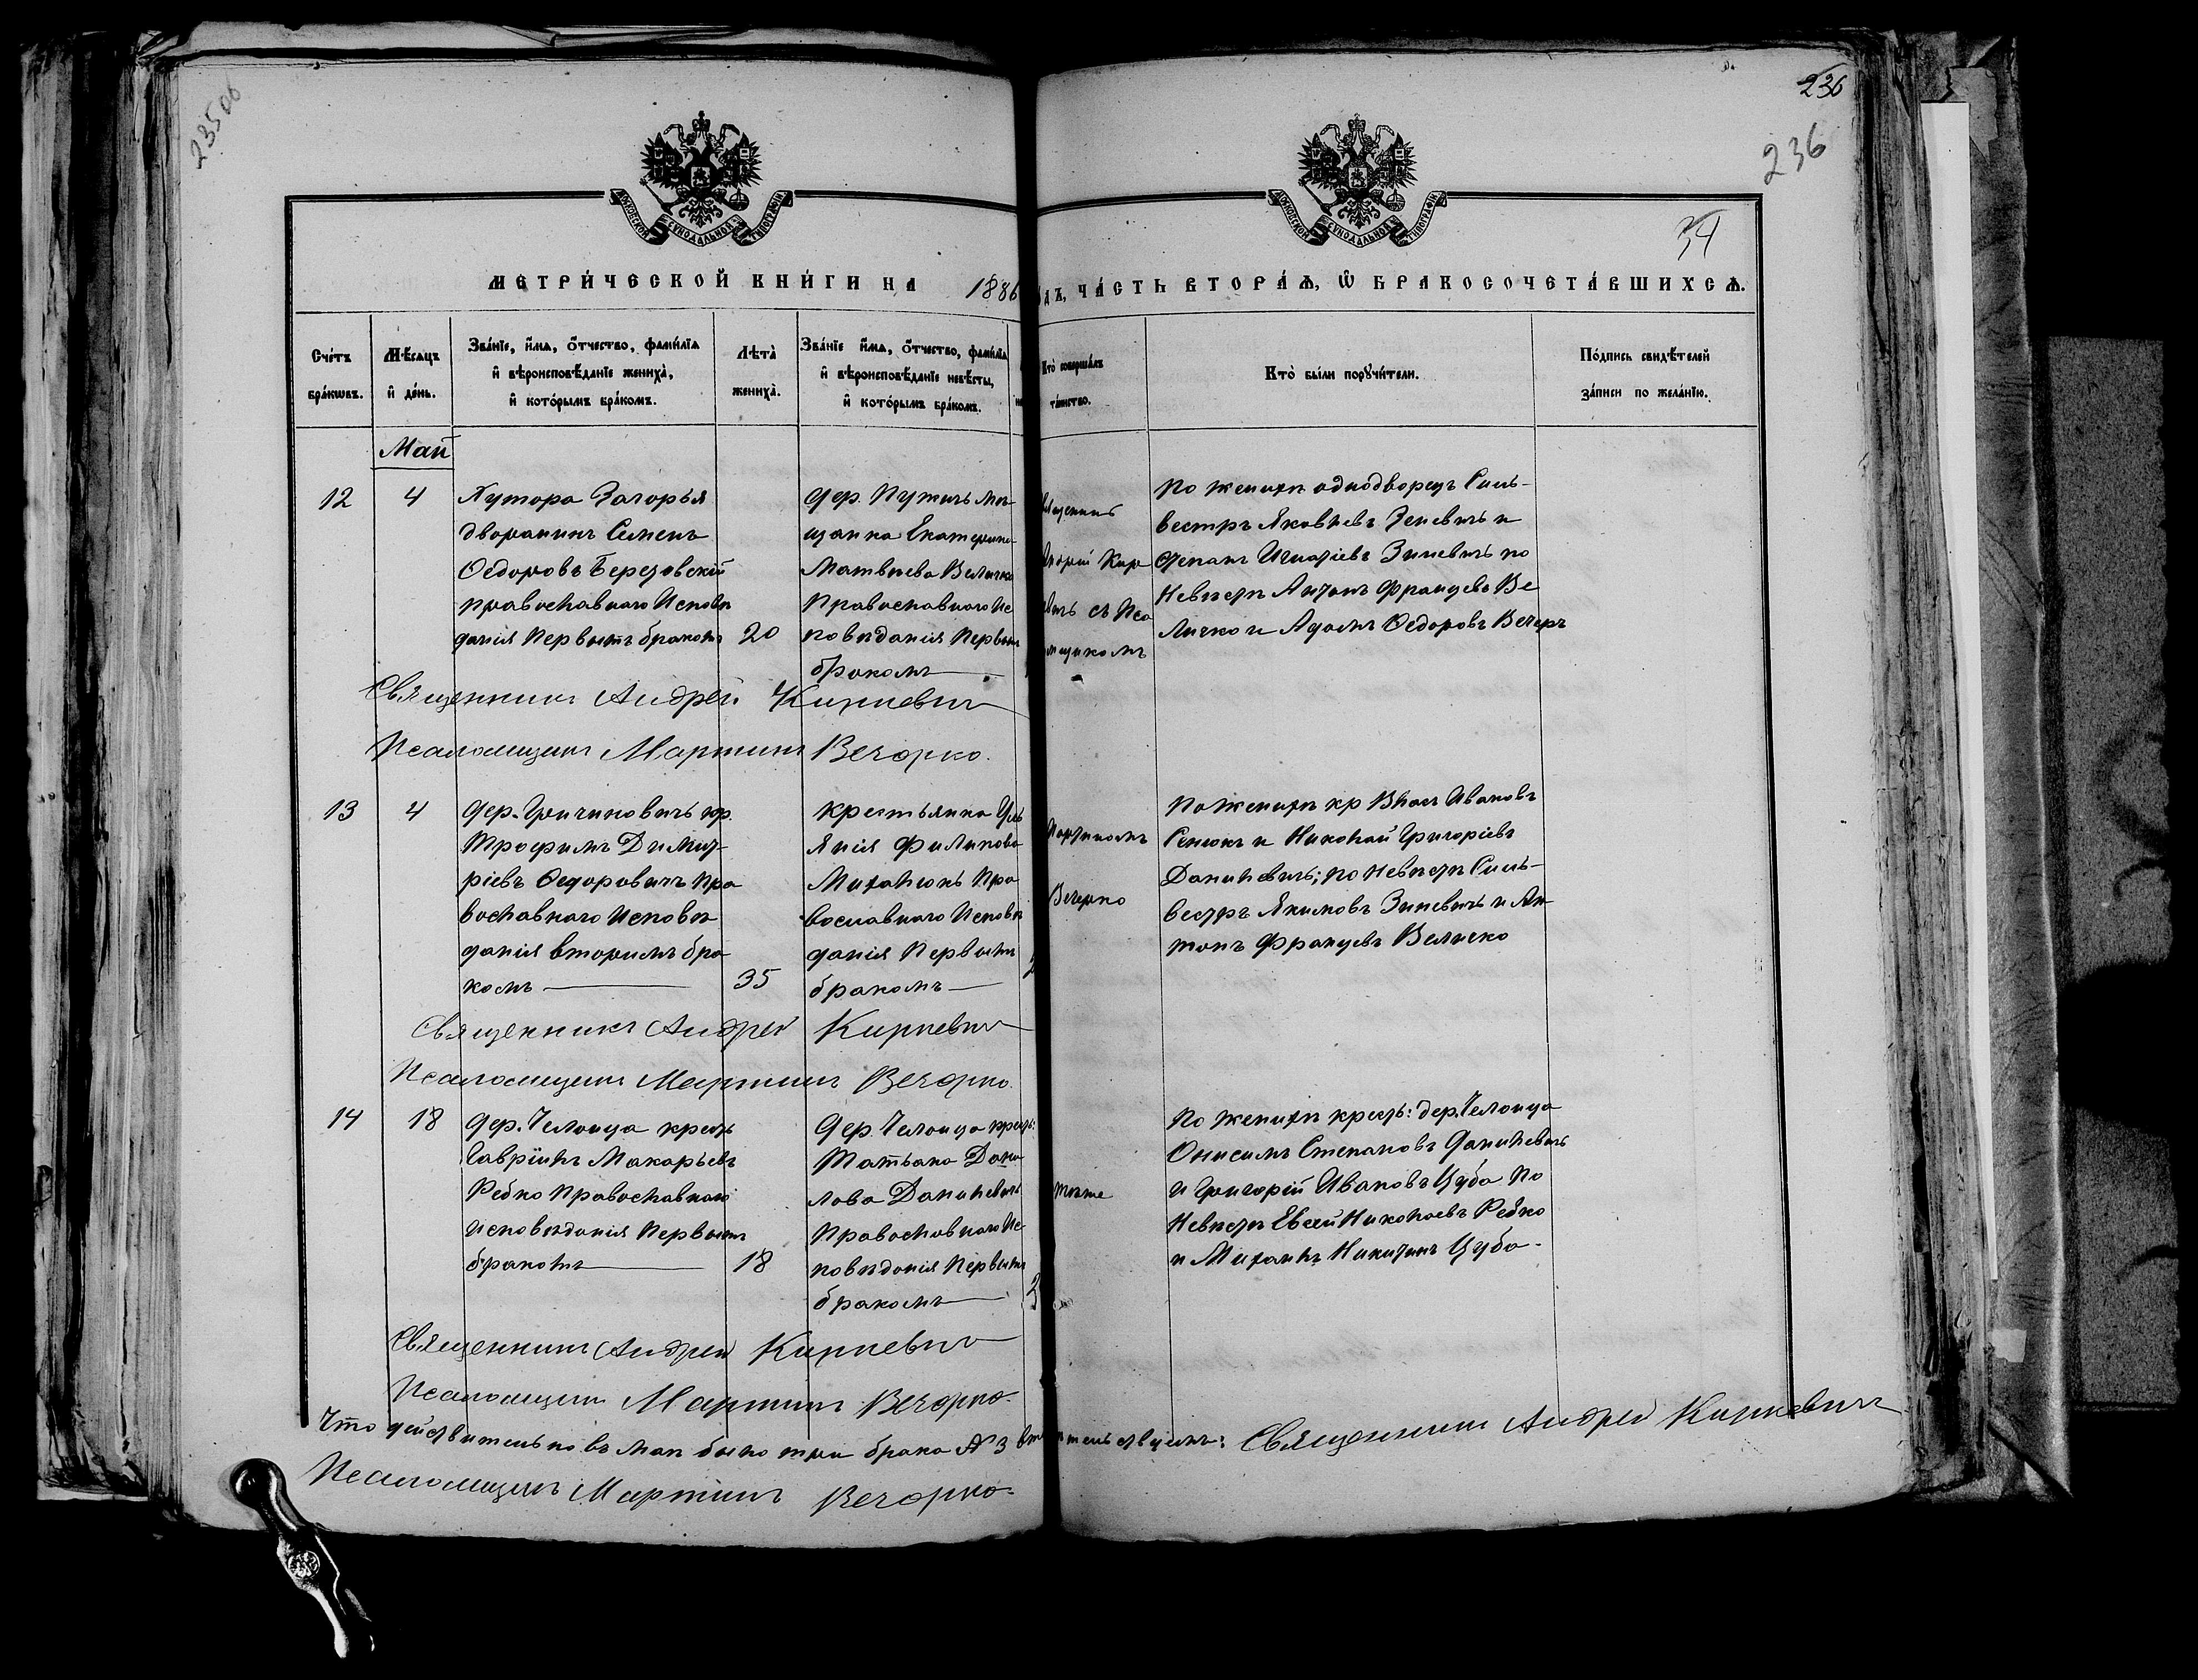 235 об
236
236
34
МОСКОВСКОЙ СѴНОДАЛЬНОЙ ТИПОГРАФІИ
МОСКОВСКОЙ СѴНОДАЛЬНОЙ ТИПОГРАФІИ
МЕТРИ́ЧЕСКОЙ КНИ́ГИ НА 1886
ДЪ, ЧА́СТЬ ВТОРА́Ѧ, Ѽ БРАКОСОЧЕТА́ВШИХСѦ.
Сче́тъ бра́кѡвъ.
Мѣ́сѧцъ и҆ де́нь.
Зва́нїе, и҆́мѧ, ѻ҆́тчество, фами́лїѧ
и҆ вѣроисповѣ́данїе жениха̀,
и҆ кото́рымъ бра́комъ.
Лѣ́та̀ жениха̀.
Зва́нїе и҆́мѧ, ѻ҆́тчество, фами́лїѧ
и҆ вѣроисповѣ́данїе невѣ́сты,
и҆ кото́рымъ бра́комъ.
Кто̀ соверша́лъ
та́инство.
Кто̀ бы́ли порꙋчи́тели.
По́дпись свидѣ́телей
за́писи по жела́нїю.
Май
12
4
Хутора Загорья
дворанинъ Семенъ
Ѳедоровъ Березовскій
православнаго Исповѣ
данія Первымъ бракомъ
20
дер. Путичъ мѣ-
щанка Екатерина
Матвѣева Величко
Православнаго Ис
повѣданія Первымъ
бракомъ
Андрей Кир
съ Пса
По женихѣ однодворецъ Силь-
вестръ Яковлевъ Зеневичъ и
Степанъ Игнатіевъ Зиневичъ по
Невѣстѣ Антонъ Францевъ Ве
личко и Адамъ Ѳедоровъ Вечеръ
Священникъ Андрей Кирневич
Псаломщикъ Мартинъ Вечорко.
13
4
дер. Гричиновичъ кр.
Трофимъ Димит-
ріевъ Ѳедоровичъ Пра
вославнаго Исповѣ
данія вторимъ бра
комъ
35
крестьянка Уль
янія Филипова
Михалюкъ Пра
вославнаго Исповѣ
данія Первымъ
бракомъ
Вечорко
По женихѣ кр Власъ Ивановъ
Сенюкъ и Николай Григоріевъ
Данилевичъ; по Невѣстѣ Силь-
вестръ Якимовъ Зиневичъ и Ан
тонъ Францевъ Величко
Священникъ Андрей Кирневич
Псаломщикъ Мартинъ Вечорко.
14
18
дер. Челонца крест
Гавріилъ Макарьевъ
Ребко Православнаго
исповѣданія Первымъ
бракомъ
18
Дер. Челонца крест:
Татьяна Дани
лова Данилевичъ
Православнаго Ис-
повѣданія Первымъ
бракомъ
тѣже
По женихѣ крест: дер. Челонца
Онисимъ Степановъ Данилевичъ
и Григорій Ивановъ Цуба По
Невѣстѣ Евсей Николаевъ Ребко
и Михаилъ Никитинъ Цуба.
Священникъ Андрей Кирневич
Псаломщикъ Мартинъ Вечорко.
Что дѣйствительно въ маѣ было три брака № 3
Священникъ Андрей Кирневич
Псаломщикъ Мартинъ Вечорко.